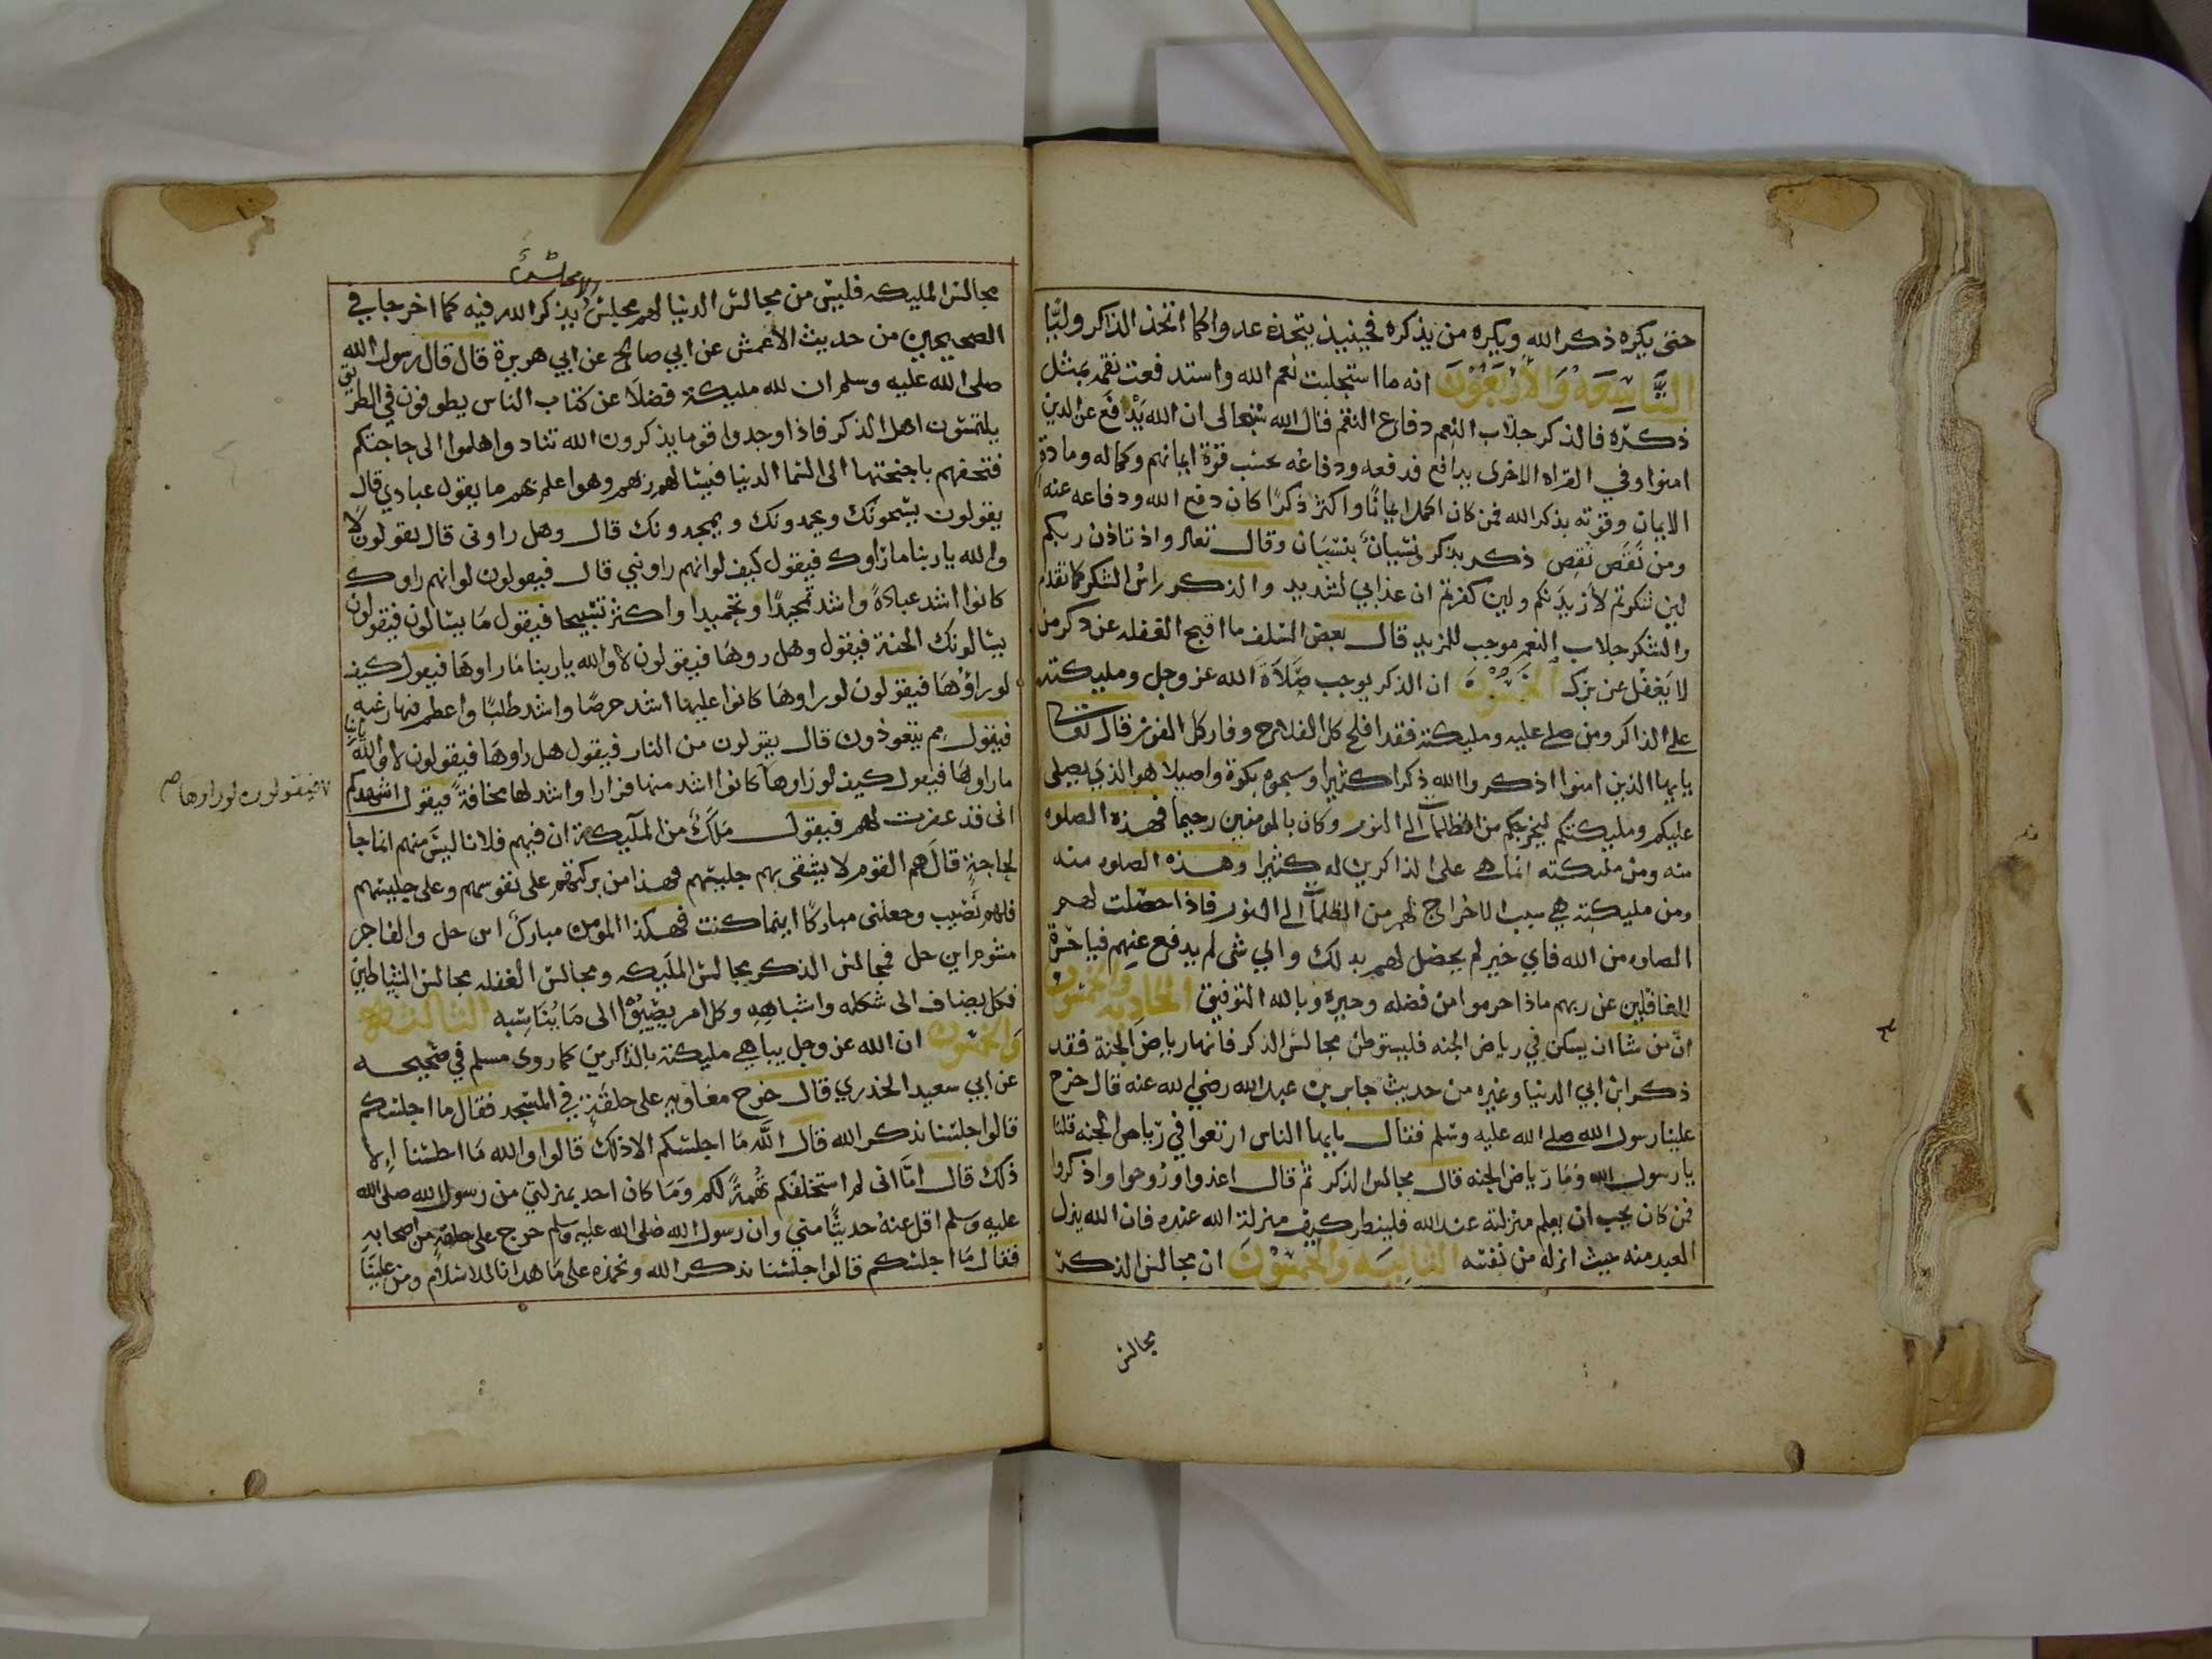 حتى يكره ذكر الله ويكره من يذكره فحينيذ يتخذه عدوا كما اتخذ الذاكر وليًا
التاسعه والأربعون انه ما استجلبت نعم الله واستدفعت نقمه بمثل
ذكره فالذكر جلاب النعم دفاع النقم قال الله تعالى ان الله يدافع عن الذين
امنوا وفي القراه الاخرى يدافع فدفعه ودفاعه بحسب قوة ايمانهم وكماله ومادة
الايمان وقوته بذكر الله فمن كان اكمل ايمانًا واكثر ذكرًا كان دفع الله ودفاعه عنه
ومن نقص نقص ذكر بذكر ونسيان بنسيان وقال تعالى واذ تاذن ربكم
لين شكرتم لأزيدنكم ولين كفرتم ان عذابي لشديد والذكر راس الشكر كما تقدم
والشكر جلاب النعم موجب للمزيد قال بعض السلف ما اقبح الغفله عن ذكر من
لا يغفل عن برك الخمسون ان الذكر يوجب صلاة الله عز وجل ومليكته
على الذاكر ومن صلى عليه ومليكته فقد افلح كل الفلاح وفاز كل الفوز قال تعالى
يايها الذين امنوا اذكروا الله ذكرا كثيرا وسبحوه بكرة واصيلا هو الذي يصلي
عليكم ومليكتكم ليخرجكم من الظلمات الى النور وكان بالمومنين رحيما فهذه الصلوه
منه ومن مليكته انما هي على الذاكرين له كثيرا وهذه الصلوه منه
ومن مليكته هي سبب الاخراج لهم من الظلمات الى النور فاذا حصلت لهم
الصلوه من الله فاي خير لم يحصل لهم بذلك واي شي لم يدفع عنهم فياحسرة
الغافلين عن ربهم ماذا حرموا من فضله وخيره وبالله التوفيق الحاديه والخمسون
ان من شا ان يسكن في رياض الجنه فليستوطن مجالس الذكر فانها رياض الجنة فقد
ذكر ابن ابي الدنيا وغيره من حديث جابر بن عبد الله رضي الله عنه قال خرج
علينا رسول الله صلى الله عليه وسلم فقال يايها الناس ارتعوا في رياض الجنه قلنا
يا رسول الله وما رياض الجنه قال مجالس الذكر ثم قال اغدوا وروحوا واذكروا
فمن كان يحب ان يعلم منزلته عند الله فلينظر كيف منزلة الله عنده فان الله ينزل
العبد منه حيث انزله من نفسه الثانيه والخمسون ان مجالس الذكر
مجالس
مجالس المليكه فليس من مجالس الدنيا لهم مجلس يذكر الله فيه كما اخرجا في
الصحيحين من حديث الاعمش عن ابي صالح عن ابي هريرة قال قال رسول الله
صلى الله عليه وسلم ان لله مليكة فضلا عن كتاب الناس يطوفون في الطريق
يلتمسون اهل الذكر فاذا وجدوا قوما يذكرون الله تنادوا هلموا الى حاجتكم
فتحفهم باجنحتها الى السما الدنيا فيسالهم ربهم وهو اعلم بهم ما يقول عبادي قال
يقولون يسبحونك ويحمدونك ويمجدونك قال وهل راوني قال يقولون لا
والله يا ربنا ما راوك فيقول كيف لو انهم راوني قال فيقولون لو انهم راوك
كانوا اشد عبادة واشد تمجيدًا وتحميدا واكثر تسبيحا فيقول ما يسالون فيقولون
يسالونك الجنة فيقول وهل روها فيقولون لا والله يا ربنا ما راوها فيقول كيف
لو راوها فيقولون لو راوها كانوا عليها اشد حرصًا واشد طلبًا واعظم فيها رغبه
فيقول مم يتعوذون قال يقولون من النار فيقول هل راوها فيقولون لا والله يا ربنا
ما راوها فيقول كيف لو راوها كانوا اشد منها فرارا واشد لها مخافة فيقول اشهدكم
فيقولون لو راوها صح
اني قد غفرت لهم فيقول ملك من الملايكة ان فيهم فلانا ليس منهم انما جا
لحاجة قال هم القوم لا يشقى بهم جليسهم فهذا من بركتهم على نفوسهم وعلى جليسهم
فلهم نصيب وجعلني مباركًا اينما كنت فهكذا المومن مبارك اين حل والفاجر
مشوم اين حل فمجالس الذكر مجالس المليكه ومجالس الغفله مجالس الشياطين
فكل يضاف الى شكله واشباهه وكل امر يصير الى ما يناسبه الثالثه
والخمسون ان الله عز وجل يباهي مليكته بالذاكرين كما روى مسلم في صحيحه
عن ابي سعيد الخدري قال خرج معاويه على حلقة في المسجد فقال ما اجلسكم
قالوا جلسنا نذكر الله قال الله ما اجلسكم الا ذلك قالوا والله ما اجلسنا الا
ذلك قال اما اني لم استحلفكم تهمة لكم وما كان احد بمنزلتي من رسول الله صلى الله
عليه وسلم اقل عنه حديثًا مني وان رسول الله صلى الله عليه وسلم خرج على حلقة من اصحابه
فقال ما اجلسكم قالوا جلسنا نذكر الله ونحمده على ما هدانا للاسلام ومن علينا